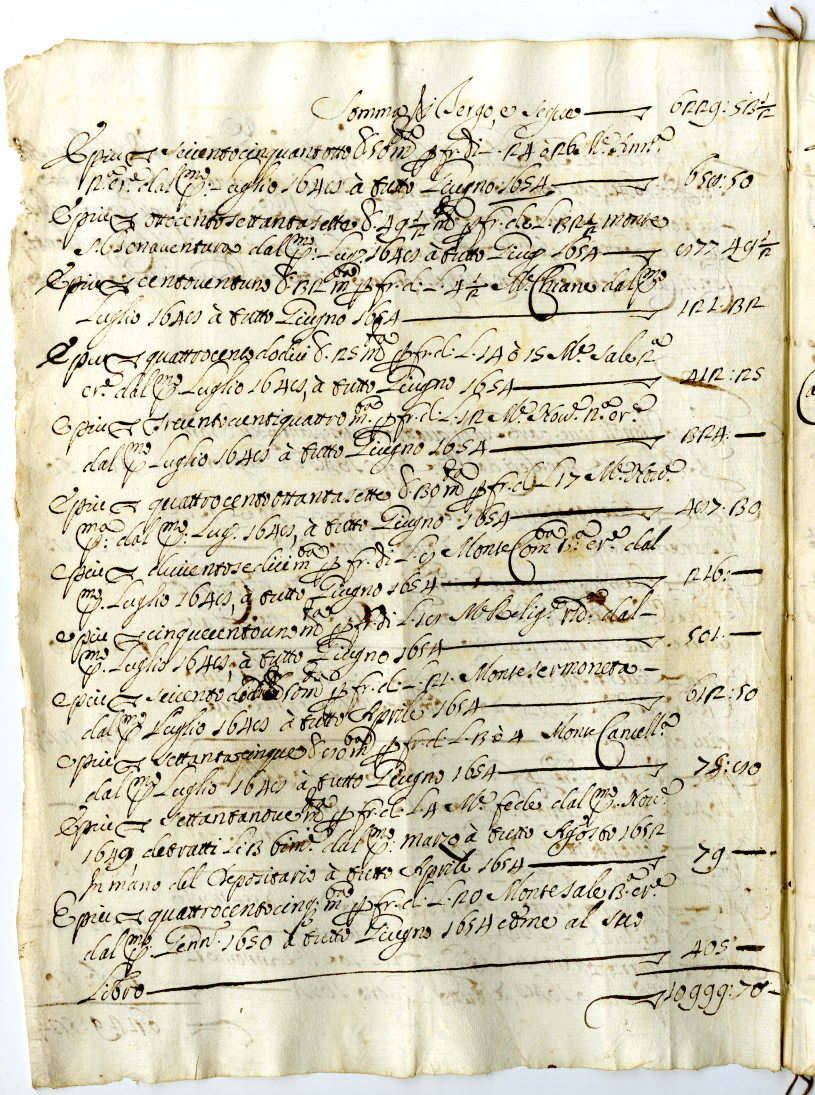 Somma di Tergo, e segue 6229:53½
E piu ▽ seicentocinquantotto δ. 50 mta p fr. di L. 24 à 26 Me Ann.a
2a er.e dal Pmo Luglio 1648 à tutto Giugno 1654 658:50
E piu ▽ ottocentosettantasette δ. 49½ mta p fr. de L. 32½ monte
S. Bonaventura dal Pmo Lug. 1648 à tutto Giug. 1654 877.49½
E piu ▽ centoventuno δ. 32 mta p fr. de L. 4½ Me Chiane dal Pmo
Luglio 1648 à tutto Giugno 1654 121.32
E piu ▽ quattrocentododici δ. 25 mta p fr. de L. 14 à 15 Me Sale 2a
er.e dal Pmo Luglio 1648, à tutto Giugno 1654 412:25
E piu ▽ trecentoventiquattro mta p fr. de L. 12 Me Nov.e 2a er.e
dal Pmo Luglio 1648 à tutto Giugno 1654 324:
E piu ▽ quattrocentoottantasette δ. 30 mta p fr. de L. 17 Me Nov.e
Pma dal Pmo Lug. 1648, à tutto Giugno 1654 487.30
E piu ▽ duicentosedici mta p fr. di L. 8 Monte Com.tà 3a er.e dal
Pmo Luglio 1648, à tutto Giugno 1654 216:
E piu ▽ cinquecentouno mta p fr. di L. 18 Me Relig. dal
Pmo Luglio 1648, à tutto Giugno 1654 501.
E piu ▽ seicentododici 50 mta p fr. de L. 21. Monte Sermoneta
dal Pmo Luglio 1648 à tutto Aprile 1654 612:50
E piu ▽ settantacinque δ. 80 mta p fr. de L. 3 à 4 Monte Cancell.a
dal Pmo Luglio 1648 à tutto Giugno 1654 75:80
E piu ▽ settantanove mta p fr. de L. 4 Me fede dal Pmo Nov.e
1649, detratti L. 13 bim.i dal Pmo marzo à tutto Agosto 1652
In mano del Depositario à tutto Aprile 1654 79
E piu ▽ quattrocentocinq. mta p fr. de L. 20 Monte Sale 3a er.e
dal Pmo Genn. 1650 à tutto Giugno 1654 come al suo
Libro 405
10999:70